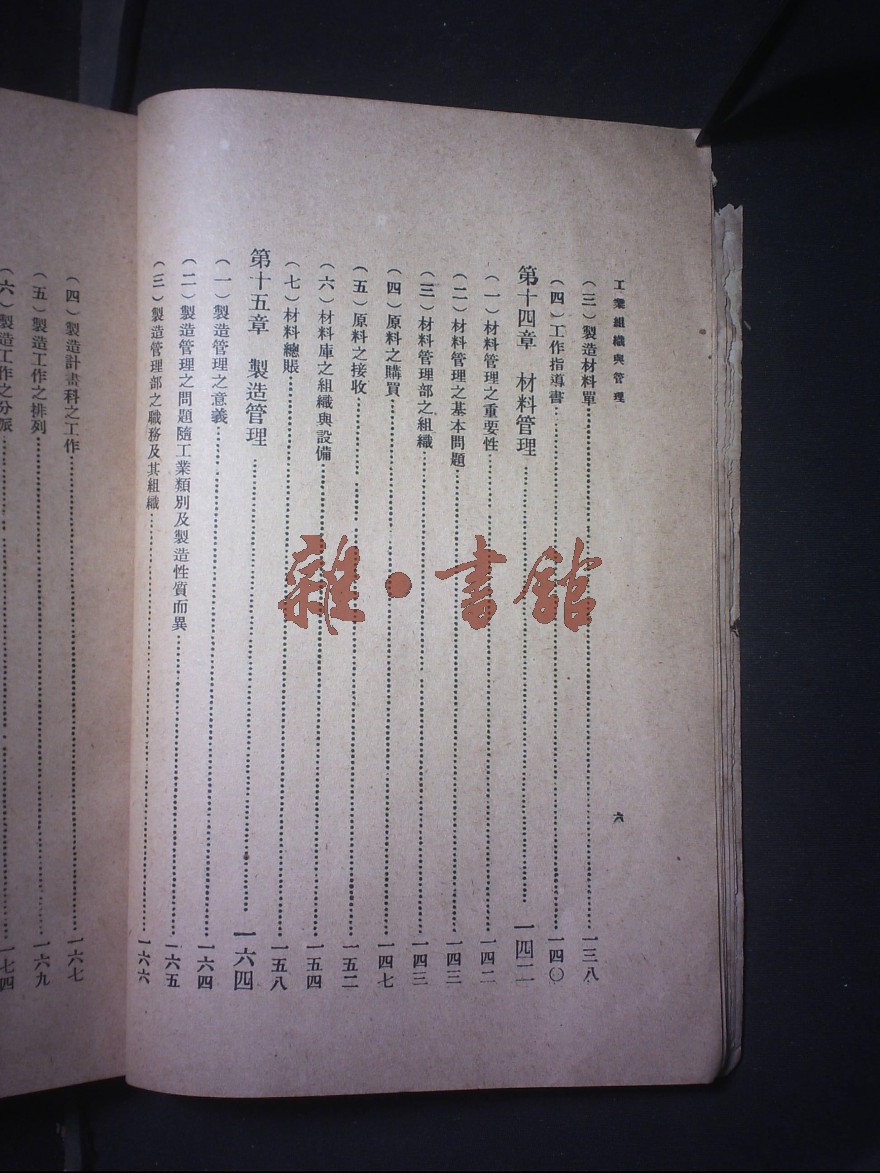 工業組織與管理
六
（三）製造材料單……一三八
（四）工作指導書……一四〇
第十四章　材料管理……一四二
（一）材料管理之重要性……一四二
（二）材料管理之基本問題……一四三
（三）材料管理部之組織……一四三
（四）原料之購買……一四七
（五）原料之接收……一五二
（六）材料庫之組織與設備……一五四
（七）材料總賬……一五八
第十五章　製造管理……一六四
（一）製造管理之意義……一六四
（二）製造管理之問題隨工業類別及製造性質而異……一六五
（三）製造管理部之職務及其組織……一六六
（四）製造計畫科之工作……一六七
（五）製造工作之排列……一六九
（六）製造工作之分派……一七四
雜·書館